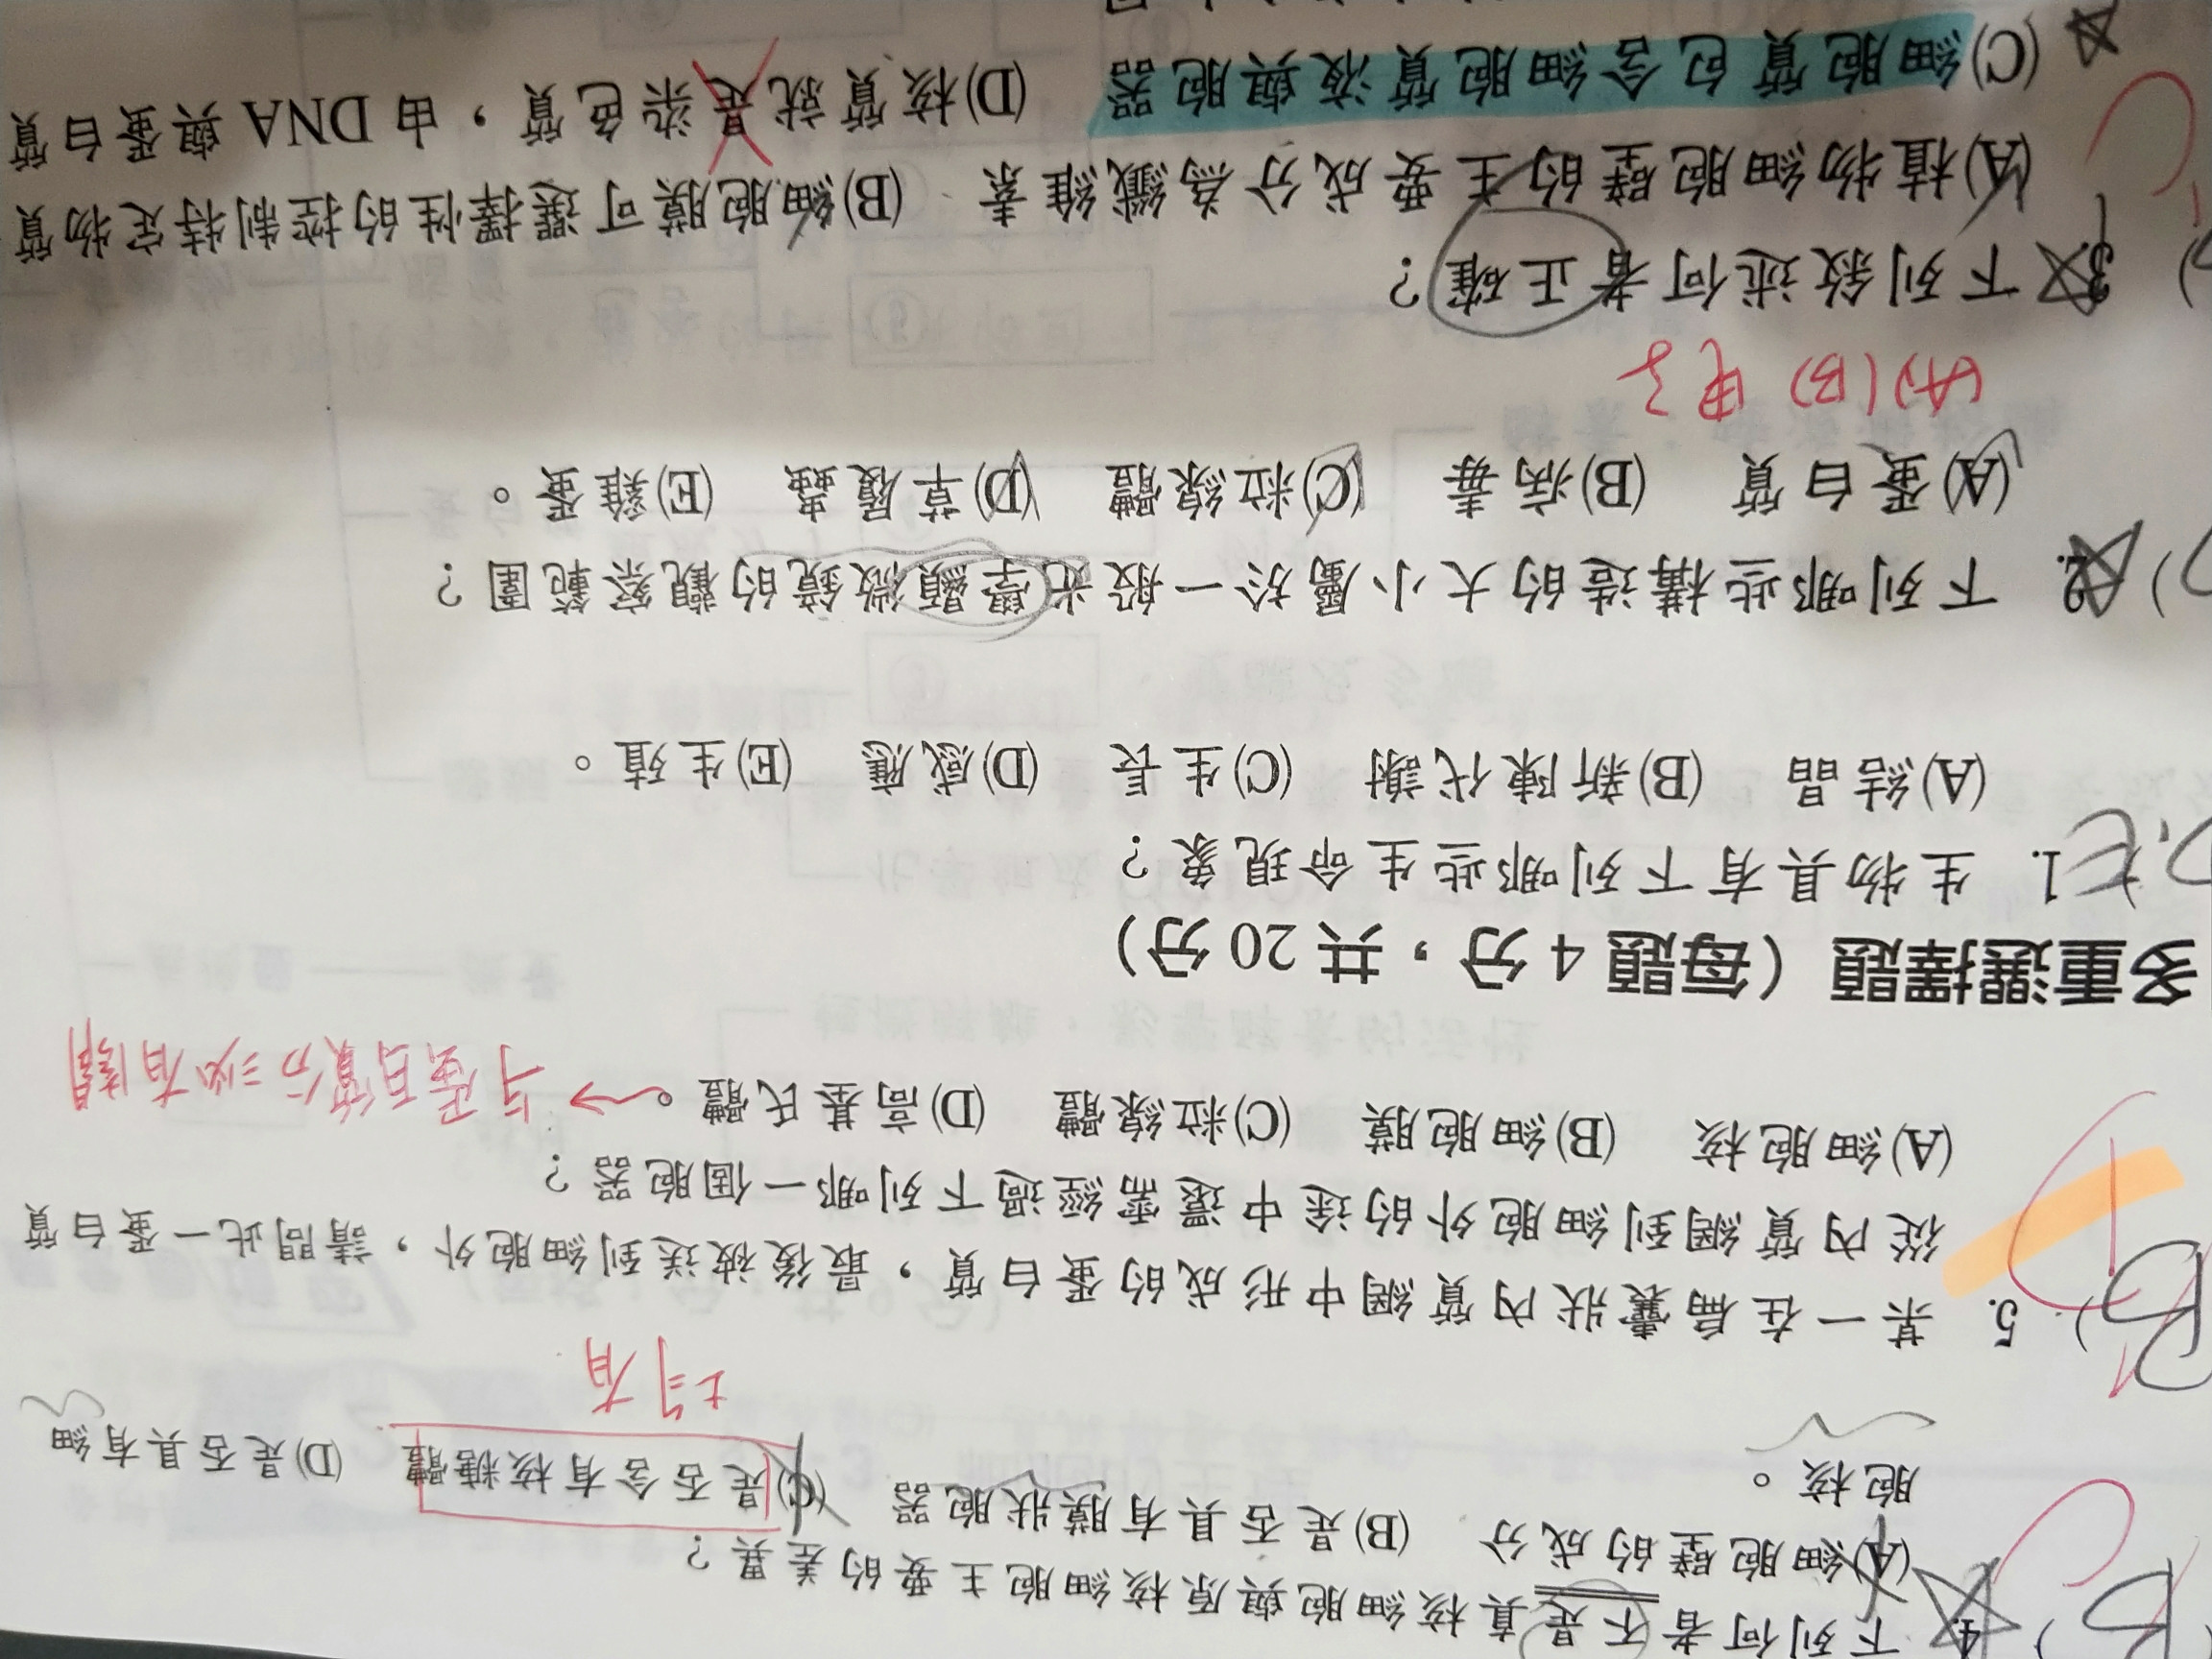 4. 下列何者不是真核細胞與原核細胞主要的差異？
(A)細胞壁的成分 (B)是否具有膜狀胞器 (C)是否含有核糖體 (D)是否具有細
胞核。
均有
5. 某一在扁囊狀內質網中形成的蛋白質，最後被送到細胞外，請問此一蛋白質
從內質網到細胞外的途中還需經過下列哪一個胞器？
(A)細胞核 (B)細胞膜 (C)粒線體 (D)高基氏體。→与蛋白質分泌有關
多重選擇題（每題 4 分，共 20 分）
1. 生物具有下列哪些生命現象？
(A)結晶 (B)新陳代謝 (C)生長 (D)感應 (E)生殖。
2. 下列哪些構造的大小屬於一般光學顯微鏡的觀察範圍？
(A)蛋白質 (B)病毒 (C)粒線體 (D)草履蟲 (E)雞蛋。
(A)(B)
3. 下列敘述何者正確？
(A)植物細胞壁的主要成分為纖維素 (B)細胞膜可選擇性的控制特定物質
(C)細胞質包含細胞質液與胞器 (D)核質就是染色質，由 DNA 與蛋白質